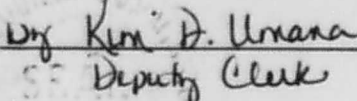 by Kim D. Umana
Deputy Clerk